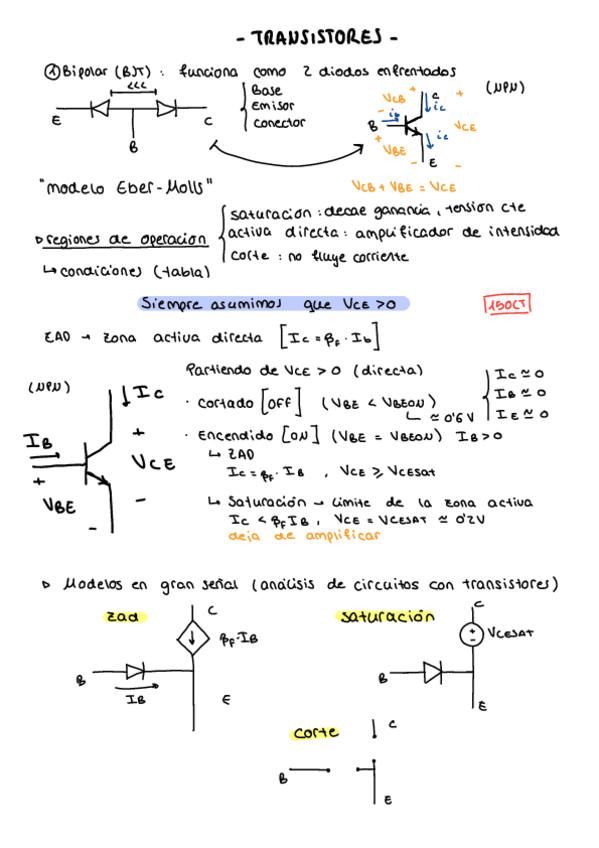 - TRANSISTORES -
① Bipolar (BJT) : funciona como 2 diodos enfrentados
<<<
E
B
C
Base
Emisor
conector
(NPN)
VCB
+
C
ic
+
B
ib
-
+
VBE
-
ic
VCE
E
-
"modelo Eber-Molls"
VCB + VBE = VCE
▷ regiones de operacion
saturacion : decae ganancia, tension cte
activa directa : amplificador de intensidad
corte : no fluye corriente
↳ condiciones (tabla)
Siempre asumimos que VCE > 0
15OCT
ZAD → zona activa directa [Ic = βF · Ib]
Partiendo de VCE > 0 (directa)
· Cortado [OFF] (VBE < VBEON)
≃ 0'6V
Ic ≃ 0
IB ≃ 0
IE ≃ 0
· Encendido [ON] (VBE = VBEON) IB > 0
↳ ZAD
Ic = βF · IB , VCE ⩾ VCEsat
↳ Saturación → Limite de la zona activa
Ic < βF IB , VCE = VCESAT ≃ 0'2V
deja de amplificar
(NPN)
IC
IB
+
+
VCE
-
VBE
-
▷ Modelos en gran señal (análisis de circuitos con transistores)
zad
C
βF·IB
B
IB
E
saturación
C
+
-
VCESAT
B
E
corte
C
B
E